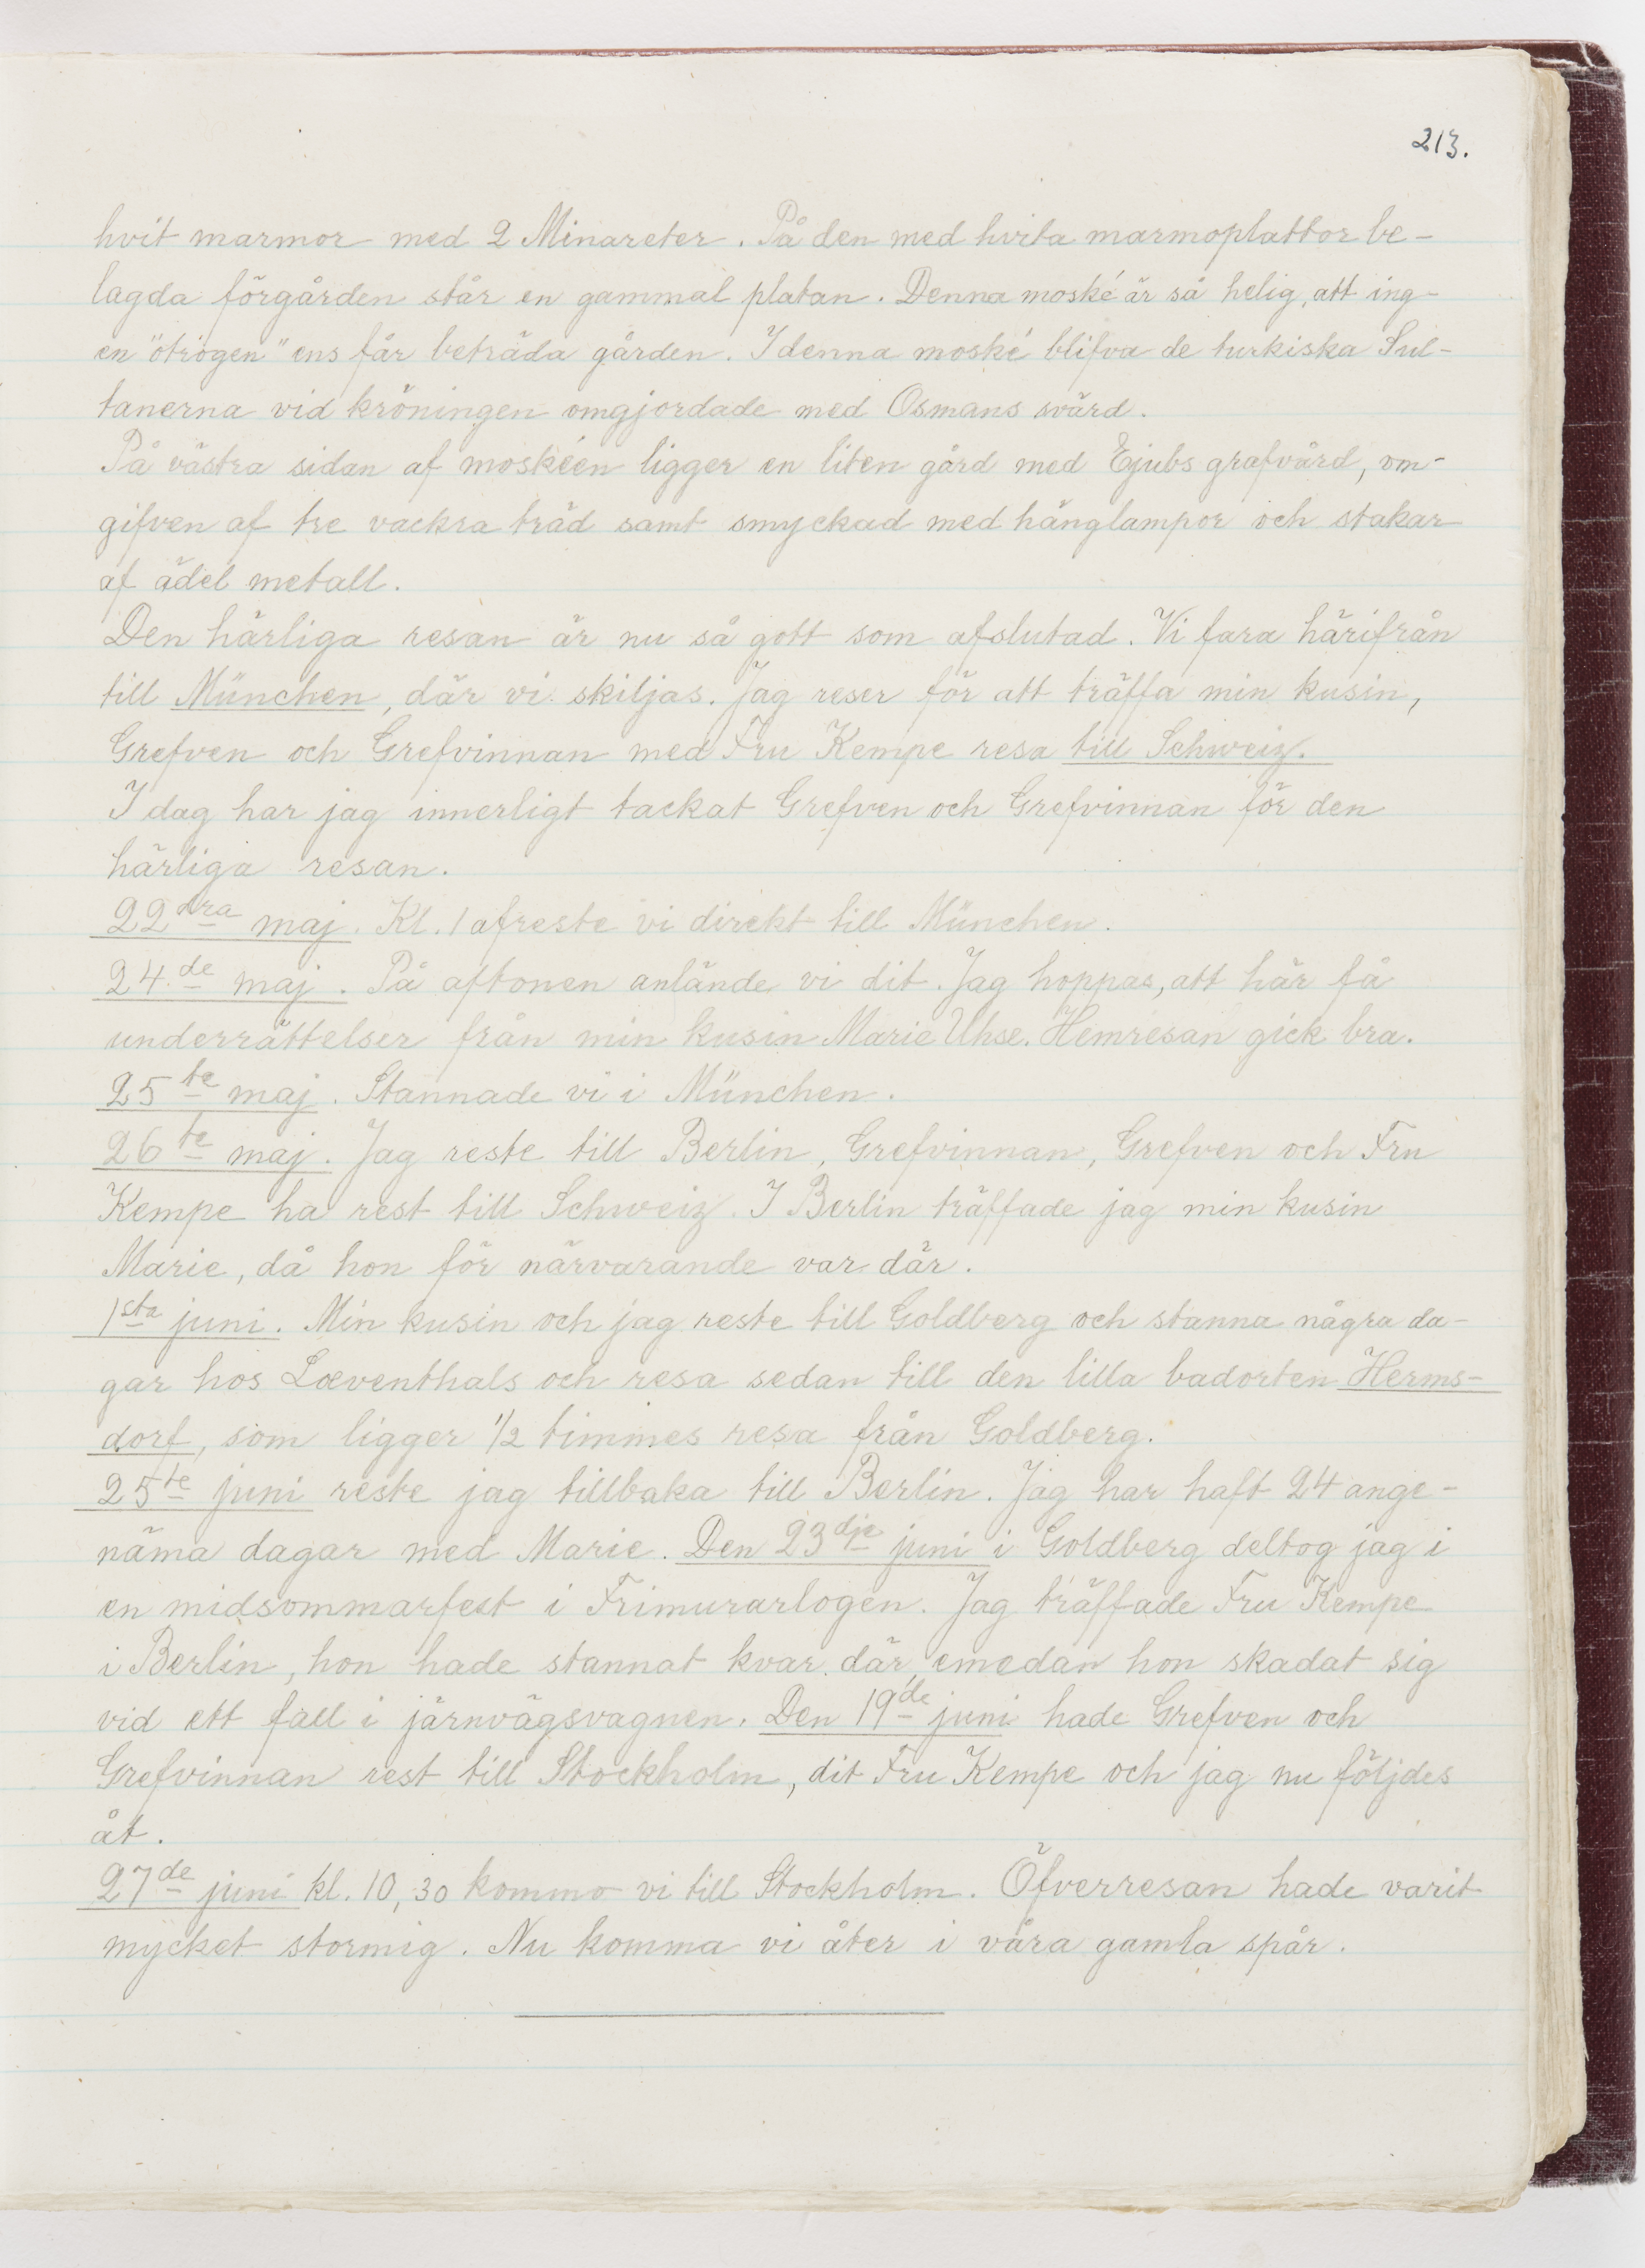 213.
hvit marmor med 2 Minareter. På den med hvita marmoplattor be-
lagda förgården står en gammal platan. Denna moské är så helig, att ing-
en "otrogen" ens får beträda gården. I denna moské blifva de turkiska Sul-
tanerna vid kröningen omgjordade med Osmans svärd.
På västra sidan af moskéen ligger en liten gård med Ejubs grafvård, om-
gifven af tre vackra träd samt smyckad med hänglampor och stakar
af ädel metall.
Den härliga resan är nu så gott som afslutad. Vi fara härifrån
till München, där vi skiljas. Jag reser för att träffa min kusin,
Grefven och Grefvinnan med Fru Kempe resa till Schweiz.
I dag har jag innerligt tackat Grefven och Grefvinnan för den
härliga resan.
22dra maj. Kl. 1 afreste vi direkt till München.
24.de maj. På aftonen anlände vi dit. Jag hoppas, att här få
underrättelser från min kusin Marie Uhse. Hemresan gick bra.
25te maj. Stannade vi i München.
26te maj. Jag reste till Berlin, Grefvinnan, Grefven och Fru
Kempe ha rest till Schweiz. I Berlin träffade jag min kusin
Marie, då hon för närvarande var där.
1sta juni. Min kusin och jag reste till Goldberg och stanna några da-
gar hos Lœventhals och resa sedan till den lilla badorten Herms-
dorf, som ligger 1/2 timmes resa från Goldberg.
25te juni reste jag tillbaka till Berlin. Jag har haft 24 ange-
näma dagar med Marie. Den 23dje juni i Goldberg deltog jag i
en midsommarfest i Frimurarlogen. Jag träffade Fru Kempe
i Berlin, hon hade stannat kvar där, emedan hon skadat sig
vid ett fall i järnvägsvagnen. Den 19de juni hade Grefven och
Grefvinnan rest till Stockholm, dit Fru Kempe och jag nu följdes
åt.
27de juni kl. 10,30 kommo vi till Stockholm. Öfverresan hade varit
mycket stormig. Nu komma vi åter i våra gamla spår.